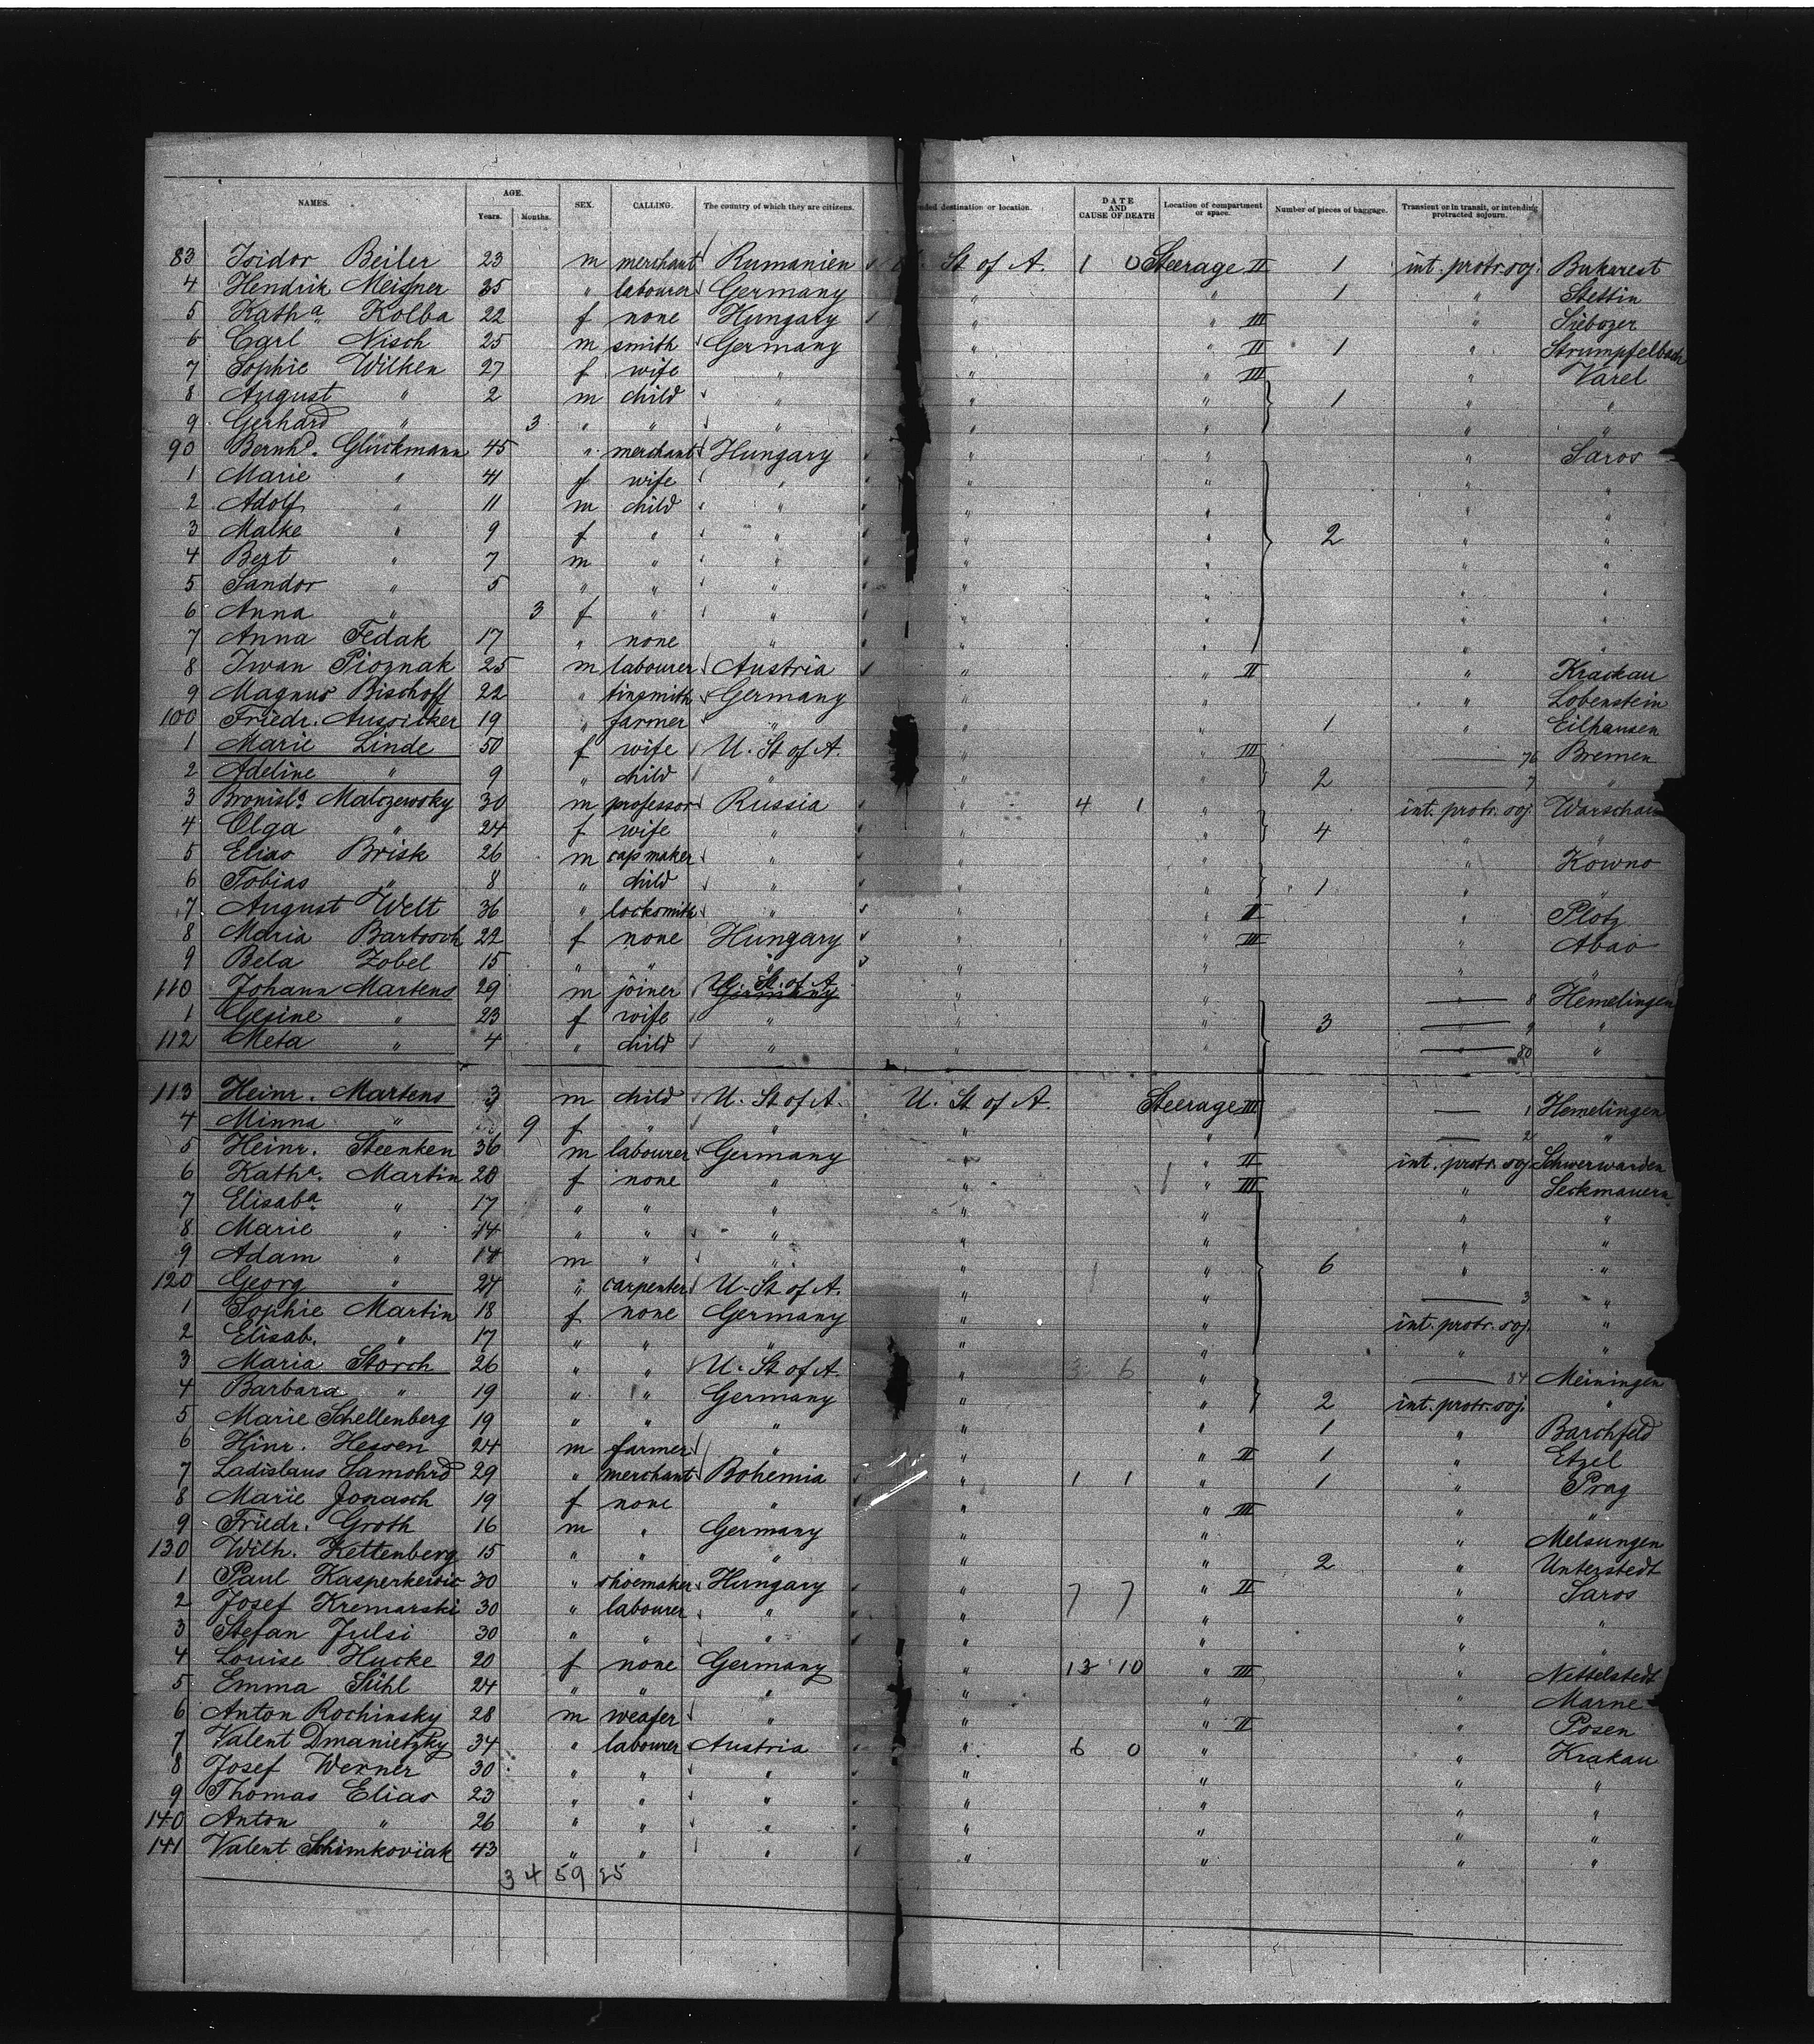 NAMES. AGE. Years. Months. SEX. CALLING. The country of which they are citizens. nded destination or location. DATE AND CAUSE OF DEATH Location of compartment or space. Number of pieces of baggage. Transient or in transit, or intending protracted sojourn.
83 Isidor Beiler 23 m merchant Rumanien St of A. 1 0 Steerage II 1 int. protr. soj. Bukarest
4 Hendrik Meisner 35 " labourer Germany " " 1 " Stettin
5 Katha Kolba 22 f none Hungary " " III " Siebozer
6 Carl Nisch 25 m smith Germany " " II 1 " Strumpfelbach
7 Sophie Wilken 27 f wife " " " III " Varel
8 August " 2 m child " " " 1 " "
9 Gerhard " 3 " " " " " " "
90 Bernhd. Glückmann 45 " merchant Hungary " " " Saros
1 Marie " 41 f wife " " " " "
2 Adolf " 11 m child " " " " "
3 Malke " 9 f " " " " 2 " "
4 Bert " 7 m " " " " " "
5 Sandor " 5 " " " " " " "
6 Anna " 3 f " " " " " "
7 Anna Fedak 17 " none " " " " "
8 Iwan Pioznak 25 m labourer Austria " " II " Krackau
9 Magnus Bischoff 22 " tinsmith Germany " " " Lobenstein
100 Friedr. 19 " farmer " " " 1 " Eilhausen
1 Marie Linde 50 f wife U. St of A. " " III 76 Bremen
2 Adeline " 9 " child " " " 2 7 "
3 Bronisla Malczewsky 30 m professor Russia " 4 1 " int. protr. soj. Warschau
4 Olga " 24 f wife " " " 4 " "
5 Elias Brisk 26 m cap maker " " " " Kowno
6 Tobias " 8 " child " " " 1 " "
7 August Welt 36 " locksmith " " " II " Plotz
8 Maria Bartosch 22 f none Hungary " " III " Abao
9 Bela Zobel 15 " " " " " " "
110 Johann Martens 29 m joiner U. St. of A. Germany " " " 8 Hemelingen
1 Gesine " 23 f wife " " " 3 " 9 "
112 Meta " 4 " child " " " 80 "
113 Heinr. Martens 3 m child U. St of A. U. St of A. Steerage III 1 Hemelingen
4 Minna " 9 f " " " " 2 "
5 Heinr. Steenken 36 m labourer Germany " " II int. protr. soj. Schwerwarden
6 Katha. Martin 20 f none " " " III " Seckmauern
7 Elisaba " 17 " " " " " " "
8 Marie " 14 " " " " " " "
9 Adam " 14 m " " " " 6 " "
120 Georg " 24 " carpenter U. St of A. " " 3 "
1 Sophie Martin 18 f none Germany " " int. protr. soj. "
2 Elisab. " 17 " " " " " " "
3 Maria Storch 26 " " U. St of A. " 3 6 " 84 Meiningen
4 Barbara " 19 " " Germany " " 2 int. protr. soj. "
5 Marie Schellenberg 19 " " " " " 1 " Barchfeld
6 Hinr. Hessen 24 m farmer " " " II 1 " Etzel
7 Ladislaus Samohrd 29 " merchant Bohemia " 1 1 " 1 " Prag
8 Marie Jonasch 19 f none " " " III " "
9 Friedr. Groth 16 m " Germany " " " Melsungen
130 Wilh. Kettenberg 15 " " " " " 2 " Unterstedt
1 Paul Kasperkewic 30 " shoemaker Hungary " 7 7 " II " Saros
2 Josef Kremarski 30 " labourer " " " " "
3 Stefan Julsi 30 " " " " " " "
4 Louise Hucke 20 f none Germany " 13 10 " III " Nettelstedt
5 Emma Sühl 24 " " " " " " Marne
6 Anton Rochinsky 28 m weafer " " " II " Posen
7 Valent Dmanietzky 34 " labourer Austria " 6 0 " " Krakau
8 Josef Werner 30 " " " " " " "
9 Thomas Elias 23 " " " " " " "
140 Anton " 26 " " " " " " "
141 Valent Schimkoviak 43 " " " " " " "
34 59 25